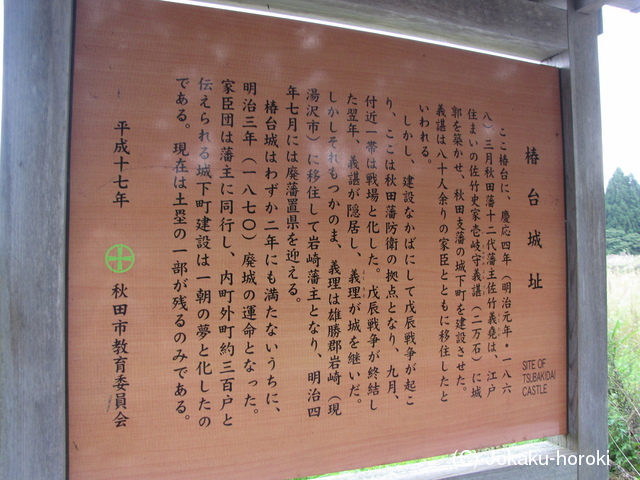 椿台城址
SITE OF
TSUBAKIDAI
CASTLE
ここ椿台に、慶応四年（明治元年・一八六
八）三月秋田藩十二代藩主佐竹義堯は、江戸
住まいの佐竹史家壱岐守義諶（二万石）に城
郭を築かせ、秋田支藩の城下町を建設させた。
義諶は八十人余りの家臣とともに移住したと
いわれる。
しかし、建設なかばにして戊辰戦争が起こ
り、ここは秋田藩防衛の拠点となり、九月、
付近一帯は戦場と化した。戊辰戦争が終結し
た翌年、義諶が隠居し、義理が城を継いだ。
しかしそれもつかのま、義理は雄勝郡岩崎（現
湯沢市）に移住して岩崎藩主となり、明治四
年七月には廃藩置県を迎える。
椿台城はわずか二年にも満たないうちに、
明治三年（一八七〇）廃城の運命となった。
家臣団は藩主に同行し、内町外町約三百戸と
伝えられる城下町建設は一朝の夢と化したの
である。現在は土塁の一部が残るのみである。
平成十七年
秋田市教育委員会
(C) Jokaku-horoki